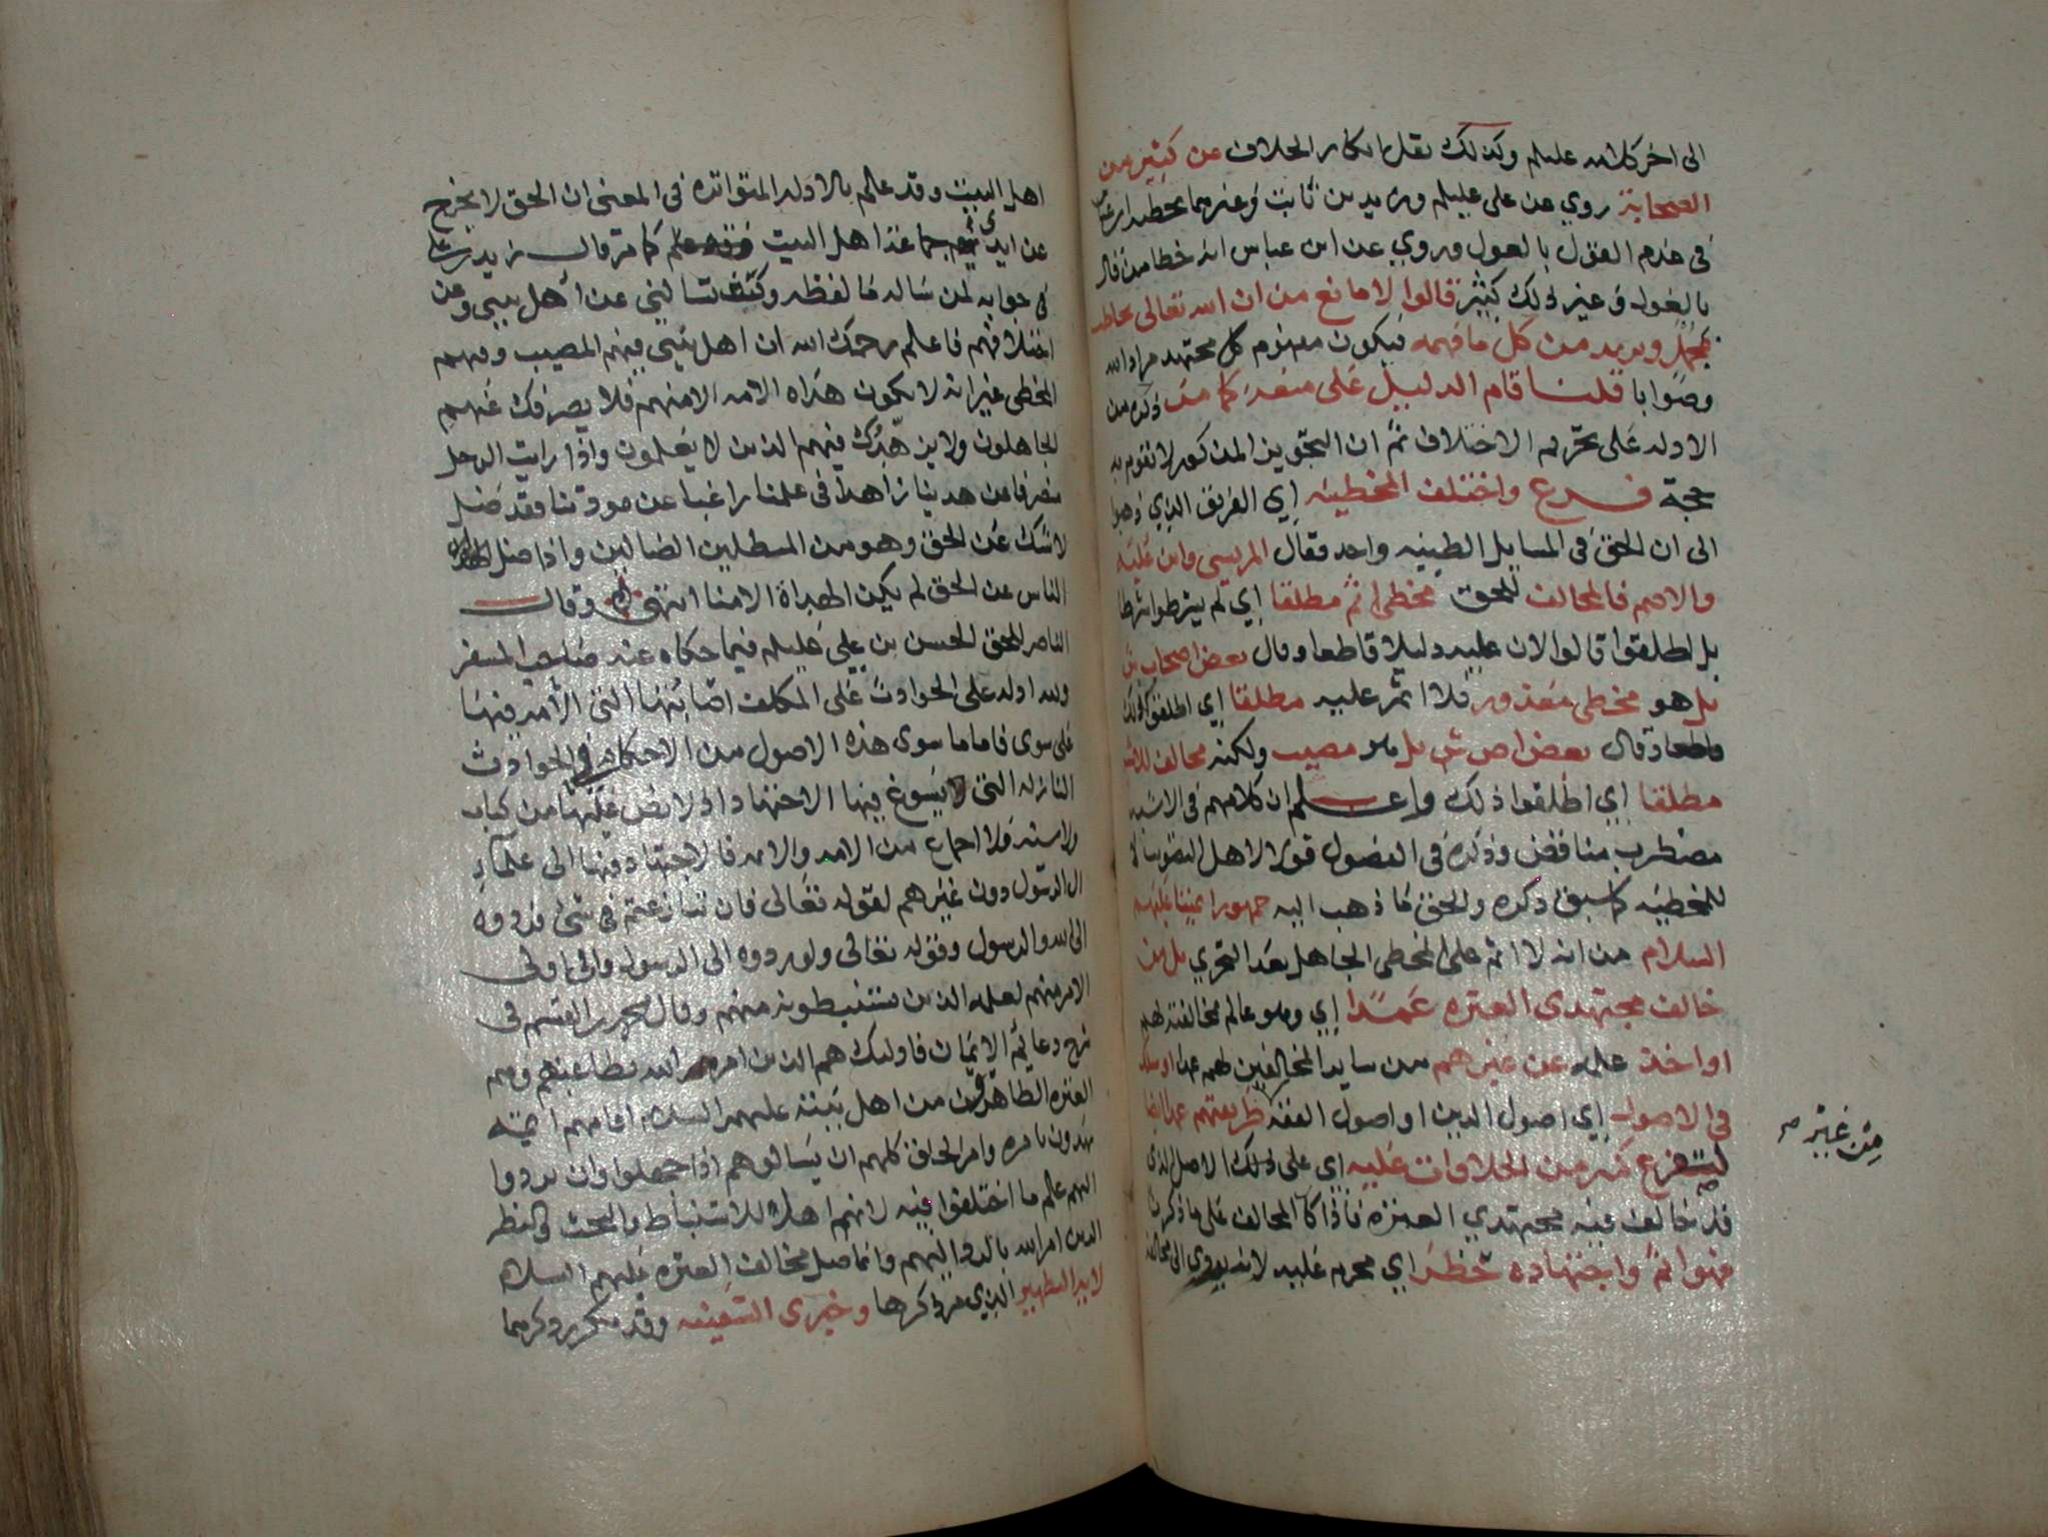 الى اخر كلامه عليلم وكذلك نقل انكار الخلاف عن كثير من
الصحابة روي عن علي عليلم وزيد بن ثابت وغيرهما تخطية ابن عباس
في عدم القول بالعول وروي عن ابن عباس انه خطا من قال
بالعول وغير ذلك كثير قالوا لا مانع من ان الله تعالى يخاطب
بمجمل ويريد من كل ما فهمه فيكون مفهوم كل مجتهد مراد الله
وصوابا قلنا قام الدليل على منعه كما مر ذكره من
الادله على تحريم الاختلاف ثم ان التجويز المذكور لا تقوم به
حجة فرع واختلف المخطئيه اي الفريق الذي ذهبوا
الى ان الحق في المسايل الظنيه واحد فقال المريسي وابن عليه
والاصم فالمخالف للحق مخطي اثم مطلقا اي لم يشرطوا شرطا
بل اطلقوا قالوا لان عليه دليلا قاطعا وقال بعض اصحاب ش
بل هو مخطي معذور فلا اثم عليه مطلقا اي اطلقوا كذلك
وقال بعض اص ش بل هو مصيب ولكنه مخالف للاشبه
مطلقا اي اطلقوا ذلك واعلم ان كلامهم في الاشبه
مضطرب متناقض وذكره في الفصول قولا لاهل التصويب لا
للمخطيه كما سبق ذكره والحق ما ذهب اليه جمهور ايمتنا عليهم
السلام من انه لا اثم على المخطي الجاهل بعد التحري بل من
خالف مجتهدي العتره عمدا اي وهو عالم مخالفته لهم
او اخذ علمه عن غيرهم من ساير المخالفين لهم عمدا او سلك
في الاصول اي اصول الدين او اصول الفقه طريقتهم عمدا ايضا
من غير
ليتفرع كثير من الخلافات عليه اي على ذلك الاصل الذي
قد خالف فيه مجتهدي العتره فاذا كان المخالف على ما ذكرنا
فهو اثم واجتهاده حظر اي محرم عليه لانه يودي الى مخالفة
اهل البيت وقد علم بالادله المتواتره في المعنى ان الحق لا يخرج
عن ايدي جماعة اهل البيت عليلم كما مر قال زيد بن علي
في جوابه لمن ساله ما لفظه وكتبت تسالني عن اهل بيتي وعن
اختلافهم فاعلم رحمك الله ان اهل بيتي فيهم المصيب وفيهم
المخطي غير انه لا تكون هداه الامه الا منهم فلا يصرفك عنهم
الجاهلون ولا يزهدك فيهم الذين لا يعلمون واذا رايت الرجل
منصرفا عن هدينا زاهدا في علمنا راغبا عن مودتنا فقد ضل
لا شك عن الحق وهو من المبطلين الضالين واذا ضل
الناس عن الحق لم يكن الهداة الا منا انتهى وقال
الناصر للحق الحسن بن علي عليلم فيما حكاه عنه صاحب المسفر
ولله ادله على الحوادث على المكلف اصابتها التي الامه فيها
على سوى فاما ما سوى هذه الاصول من الاحكام في الحوادث
النازله التي يسوغ فيها الاجتهاد اذ لا نص عليها من كتاب
ولا سنه ولا اجماع من الامه والايمه فالاجتهاد فيها الى علماء
ال الرسول دون غيرهم لقوله تعالى فان تنازعتم في شي فردوه
الى الله والرسول وقوله تعالى ولو ردوه الى الرسول والى اولي
الامر منهم لعلمه الذين يستنبطونه منهم وقال محمد بن القسم في
شرح دعايم الايمان فاوليك هم الذين امر الله بطاعتهم وهم
العتره الطاهره من اهل بيته عليهم السلام اقامهم ايمه
يهدون بامره وامر الخلق كلهم ان يسالوهم اذا جهلوا وان يردوا
اليهم علم ما اختلفوا فيه لانهم اهل الاستنباط والبحث والنظر
الذين امر الله بالرد اليهم وانما ضل مخالف العتره عليهم السلام
لاية التطهير الذي مر ذكرها وخبري السفينه وقد تكرر ذكرهما